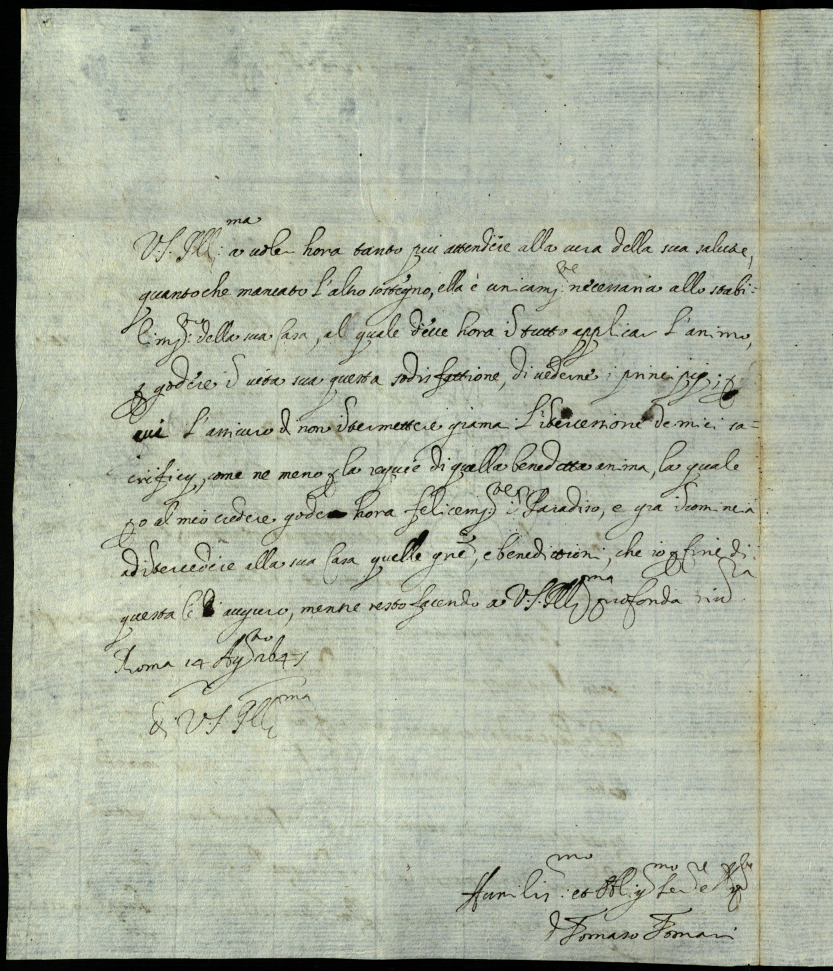 V.S. Ill:ma a voler hora tanto piu attendere alla cura della sua salute,
quanto che mancato l'altro sostegno, ella è unicam:te necessaria allo stabi:
lim:to della sua Casa, al quale deve hora il tutto applicar l'animo,
godere vita sua questa sodisfattione, di vederne i principij;
qui l'assicuro di non intermettere giamai l'intercessione de miei sa=
crificij, come ne meno la requie di quella benedetta anima, la quale
al mio credere gode hora felicem:te Paradiso, e gia incominciò
ad intercedere alla sua Casa quelle gr̃e, e benedittioni, che io fine di
questa le auguro, mentre resto facendo a V.S. Ill:ma profonda riu:za
Roma 14 Ag:to
di V.S. Ill:ma
Humiliss:mo et Obligmo Ser:re
Tomaso